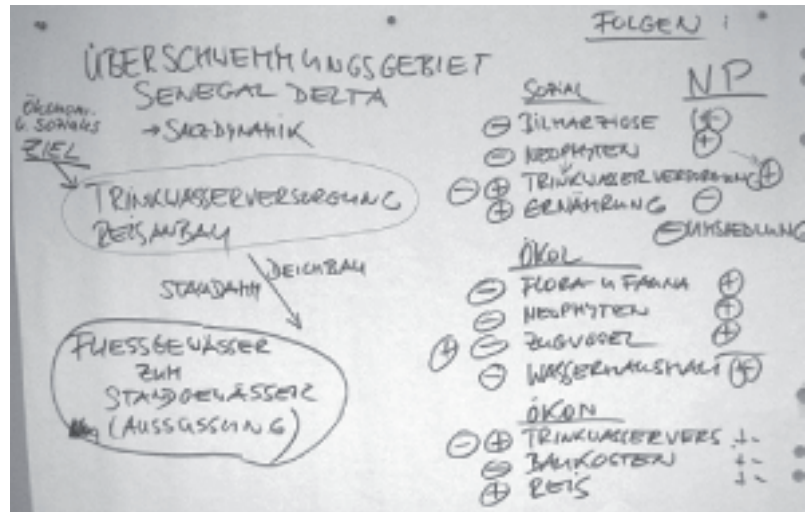 ÜBERSCHWEMMUNGSGEBIET
SENEGAL DELTA
→ SALZDYNAMIK
ÖKONOM.
U. SOZIALES
ZIEL
TRINKWASSERVERSORGUNG
REISANBAU
STAUDAMM
DEICHBAU
FLIESSGEWÄSSER
ZUM
STANDGEWÄSSER
(AUSSÜSSUNG)
FOLGEN :
SOZIAL NP
⊖ BILHARZIOSE
⊖ NEOPHYTEN ⊕
⊖ ⊕ TRINKWASSERVERSORGUNG ⊕
⊕ ERNÄHRUNG ⊖
⊖ UMSIEDLUNG
ÖKOL
⊖ FLORA U FAUNA ⊕
⊖ NEOPHYTEN ⊕
⊕ ⊖ ZUGVÖGEL ⊕
⊖ WASSERHAUSHALT
ÖKON
⊖ ⊕ TRINKWASSERVERS +-
⊖ BAUKOSTEN +-
⊕ REIS +-